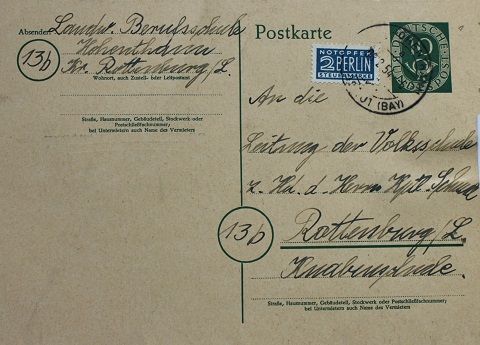 Absender:
Landw. Berufsschule
Hohenthann
13b
Kr. Rottenburg/L.
Wohnort, auch Zustell- oder Leitpostamt
Straße, Hausnummer, Gebäudeteil, Stockwerk oder
Postschließfachnummer;
bei Untermietern auch Name des Vermieters
Postkarte
NOTOPFER
2 BERLIN
STEUERMARKE
DEUTSCHE
(BAY)
An die
Leitung der Volksschule
z. Hd. d. Herrn Hptl.
13b
Rottenburg/L.
Knabenschule.
Straße, Hausnummer, Gebäudeteil, Stockwerk oder Postschließfachnummer;
bei Untermietern auch Name des Vermieters